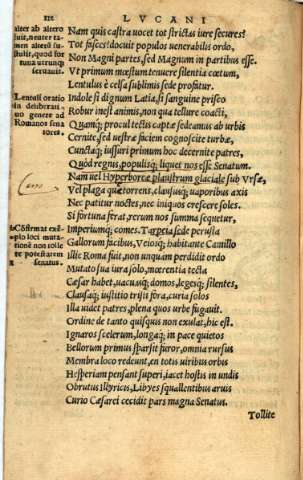 LVCANI
alter ab altero
fuit, neuter ta-
men alteru su-
stulit, quod for
tuna utrunq;
seruauit.
Nam quis castra uocet tot strictas iure secures?
Tot fasces? docuit populos uenerabilis ordo,
Non Magni partes, sed Magnum in partibus esse.
Vt primum mœstum tenuere silentia cœtum,
Lentulus è celsa sublimis sede profatur.
Lentuli oratio
deliberati
uo genere ad
Romanos sena
tores.
Indole si dignum Latia, si sanguine prisco
Robur inest animis, non qua tellure coacti,
Quamq; procul tectis captæ sedeamus ab urbis
Cernite, sed uestræ faciem cognoscite turbæ,
Cunctaq; iussuri primum hoc decernite patres,
Quod regnis, populisq; liquet nos esse Senatum.
Nam uel Hyperboreæ plaustrum glaciale sub Vrsæ,
Vel plaga qua torrens, claususq; uaporibus axis
Nec patitur noctes, nec iniquos crescere soles,
Si fortuna ferat, rerum nos summa sequetur,
Cõfirmat exẽ-
plo loci muta-
tionẽ non solle
re potestatem
senatus.
Imperiumq; comes. Tarpeia sede perusta
Gallorum facibus, Veiosq; habitante Camillo
Illic Roma fuit, non unquam perdidit ordo
Mutato sua iura solo, mœrentia tecta
Cæsar habet, uacuasq; domos, legesq; silentes,
Clausaq; iustitio tristi fora, curia solos
Illa uidet patres, plena quos urbe fugauit.
Ordine de tanto quisquis non exulat, hic est.
Ignaros scelerum, longaq; in pace quietos
Bellorum primus sparsit furor, omnia rursus
Membra loco redeunt, en totis uiribus orbis
Hesperiam pensant superi, iacet hostis in undis
Obrutus Illyricis, Libyes squallentibus aruis
Curio Cæsarei cecidit pars magna Senatus.
Tollite